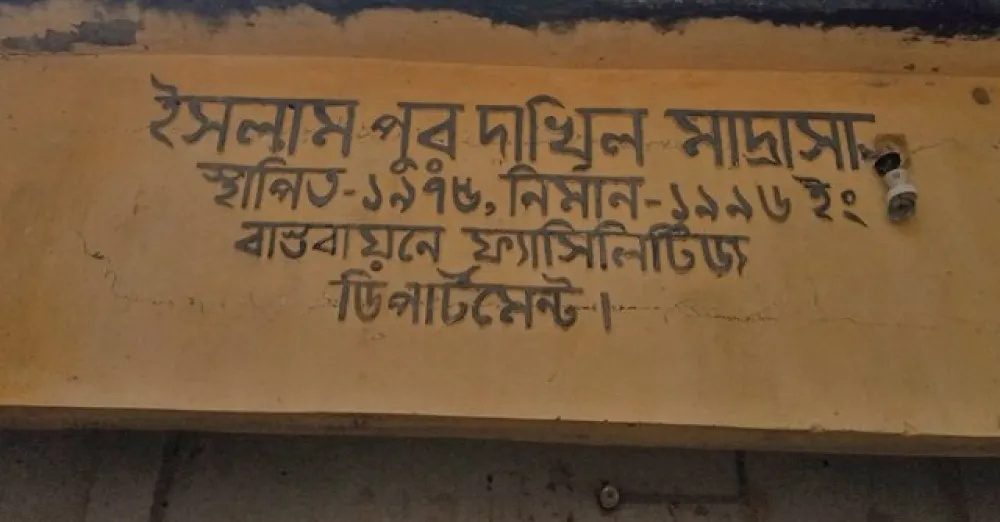 ইসলাম পুর দাখিল মাদ্রাসা
স্থাপিত-১৯৭৬, নির্মান-১৯৯৬ ইং
বাস্তবায়নে ফ্যাসিলিটিজ
ডিপার্টমেন্ট।